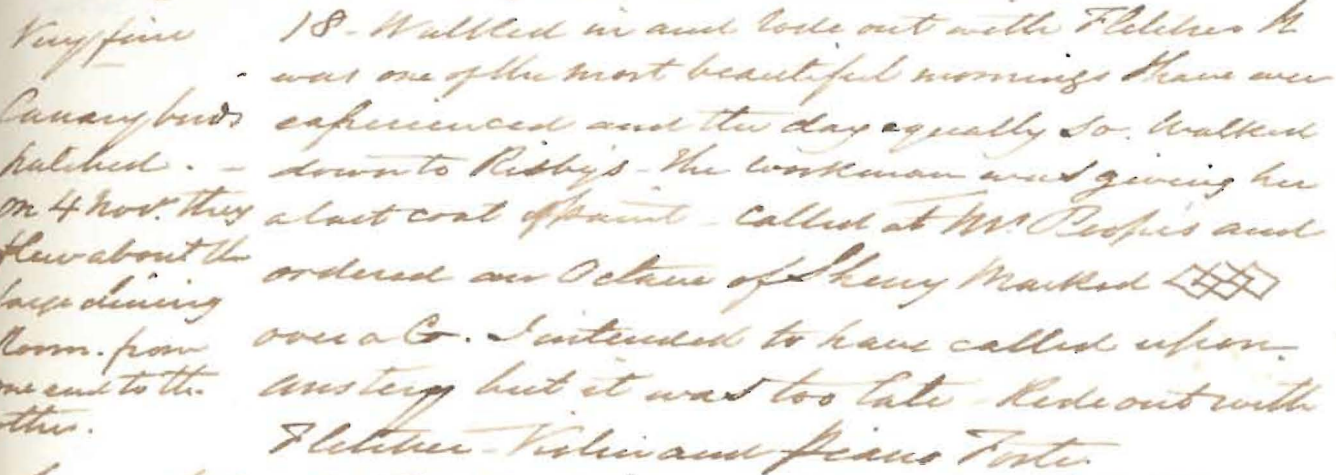 Very fine
Canary birds
hatched. -
on 4 Novr. they
flew about the
large dining
Room. from
one end to the
other.
18 - Walked in and rode out with Fletcher It
was one of the most beautiful mornings I have ever
experienced and the day equally so. Walked
down to Risby's - the workman was giving her
a last coat of paint - called at Mr. and
ordered an Octave of Sherry Marked
over a G. I intended to have called upon
Anstey but it was too late - Rode out with
Fletcher - Violin and Piano Forte